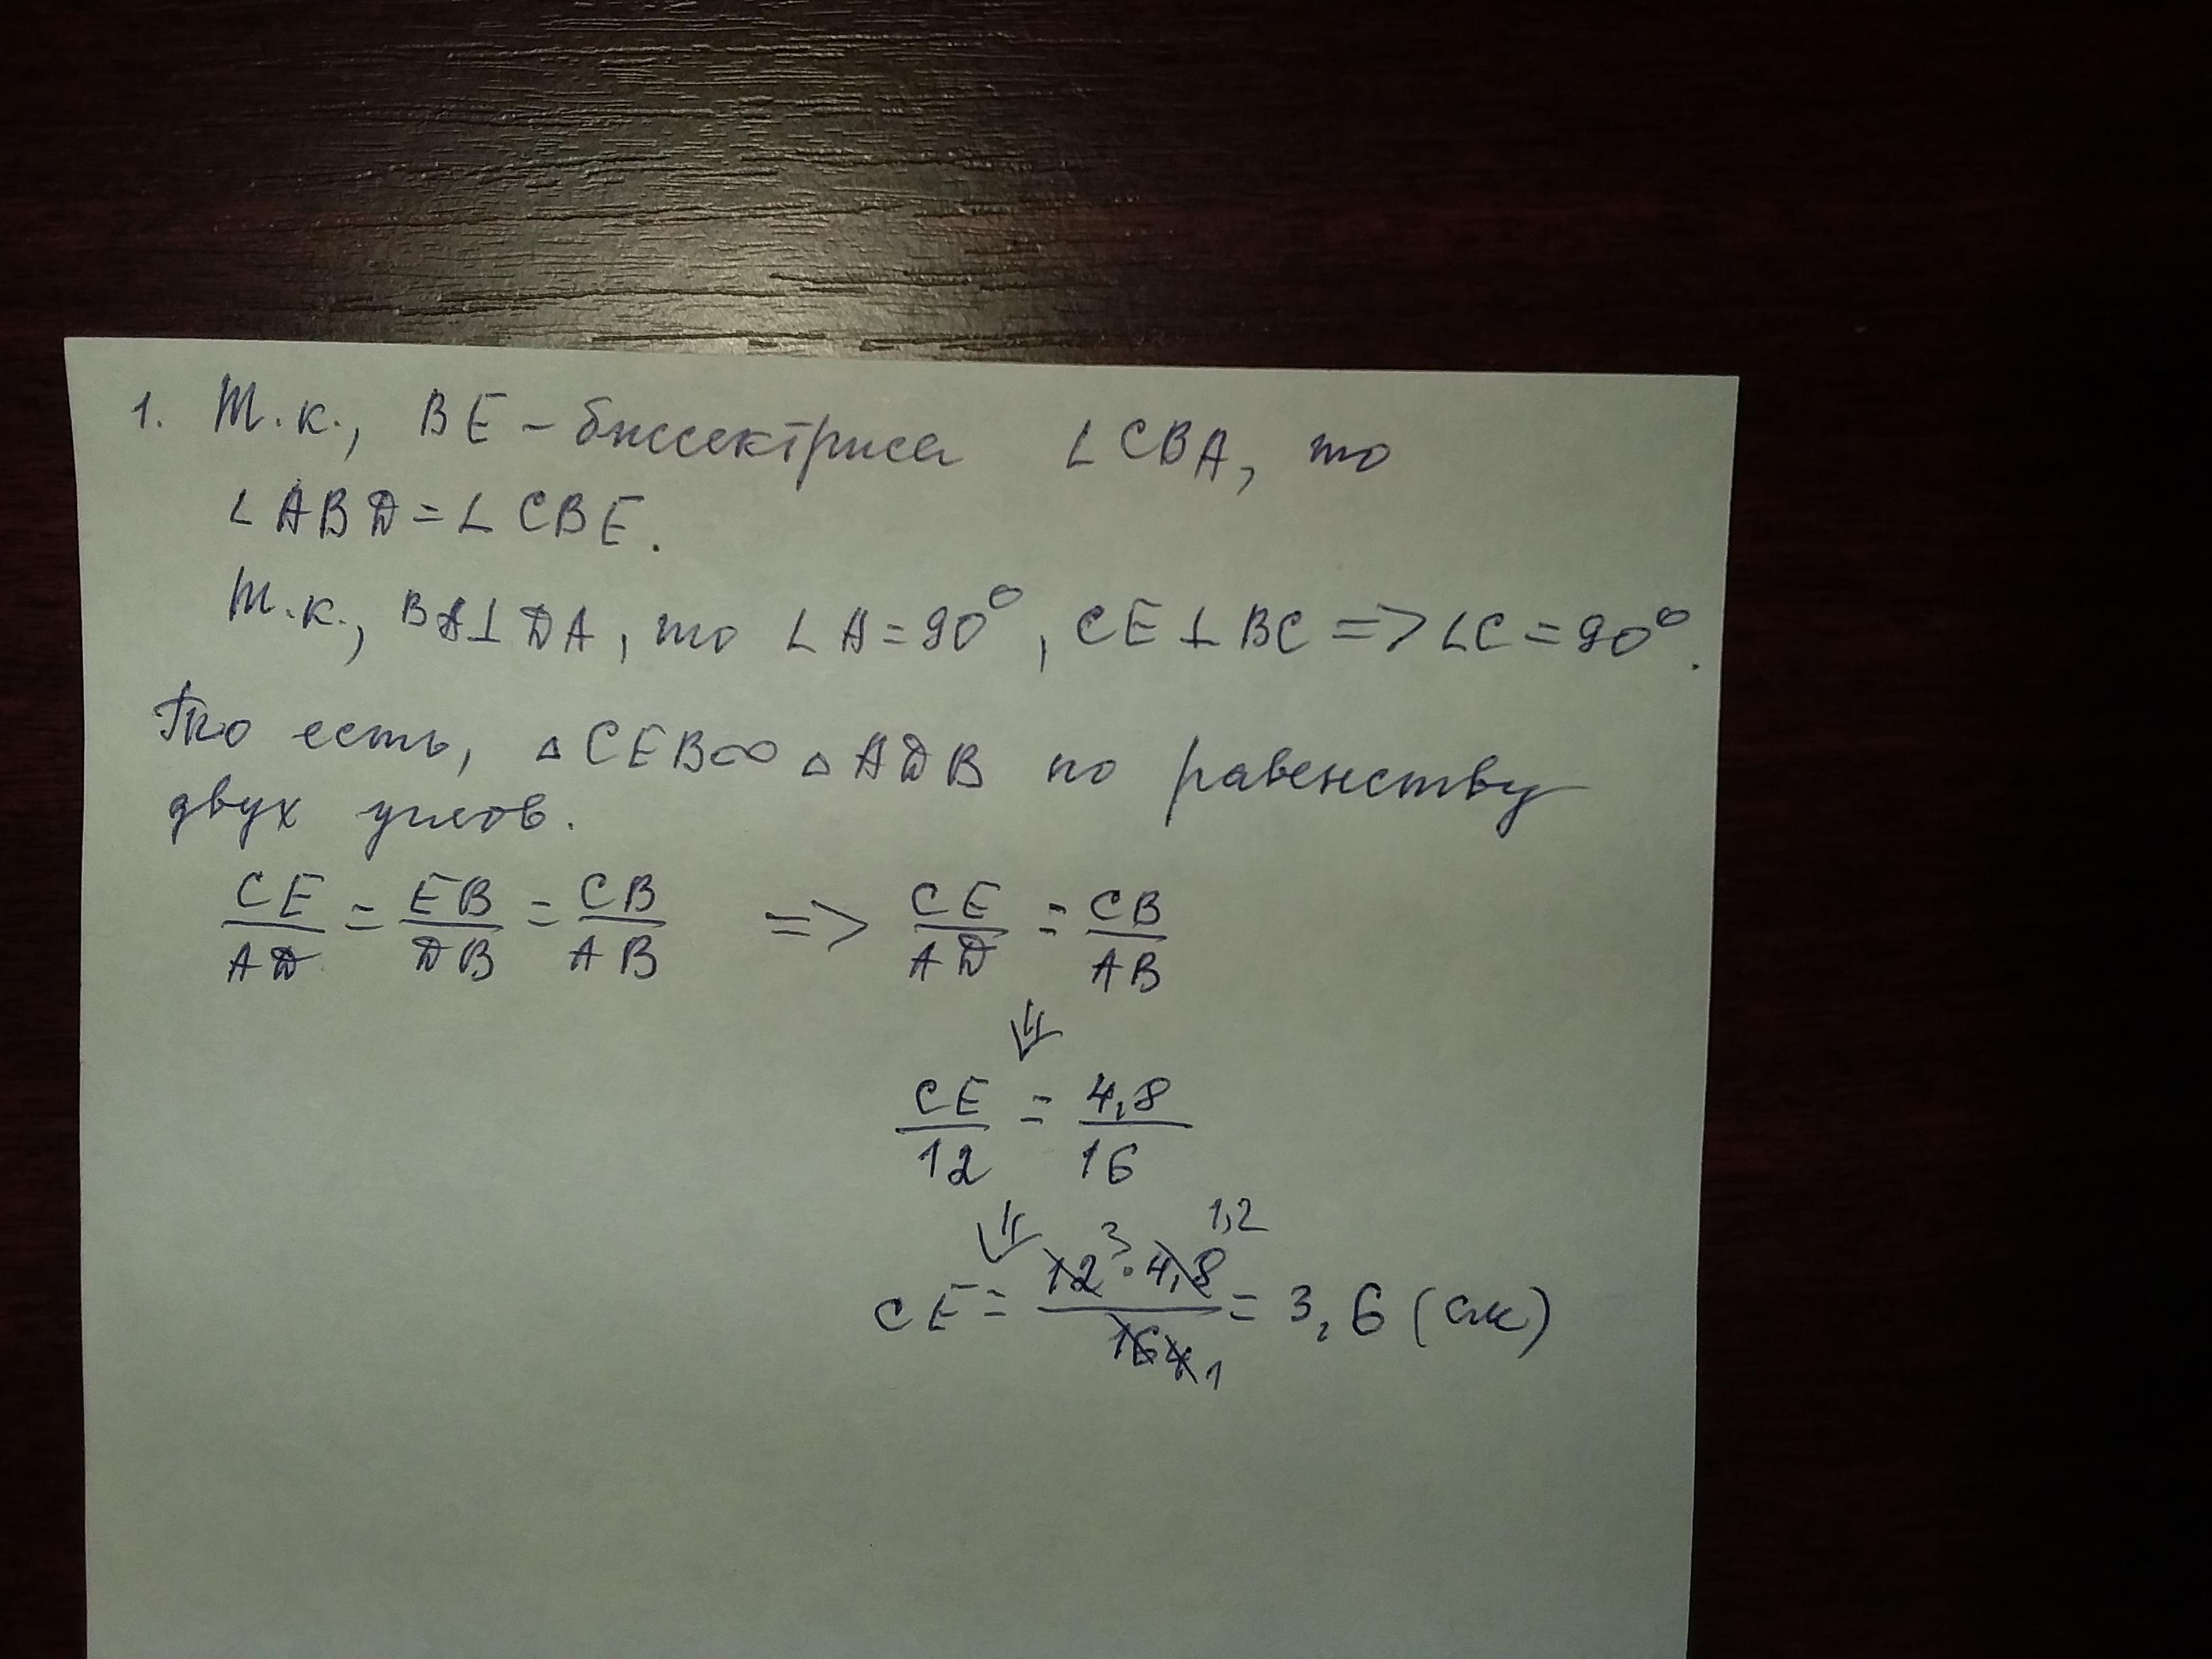 1. Т.к., BE - биссектриса ∠CBA, то
∠ABD = ∠CBE.
Т.к., BA⊥DA, то ∠A = 90°, CE⊥BC => ∠C = 90°.
То есть, △CEB∞△ADB по равенству
двух углов.
CE/AD = EB/DB = CB/AB => CE/AD = CB/AB
⇓
CE/12 = 4,8/16
⇓ 3 1,2
CE = 12 · 4,8 / 16 4 1 = 3,6 (см)